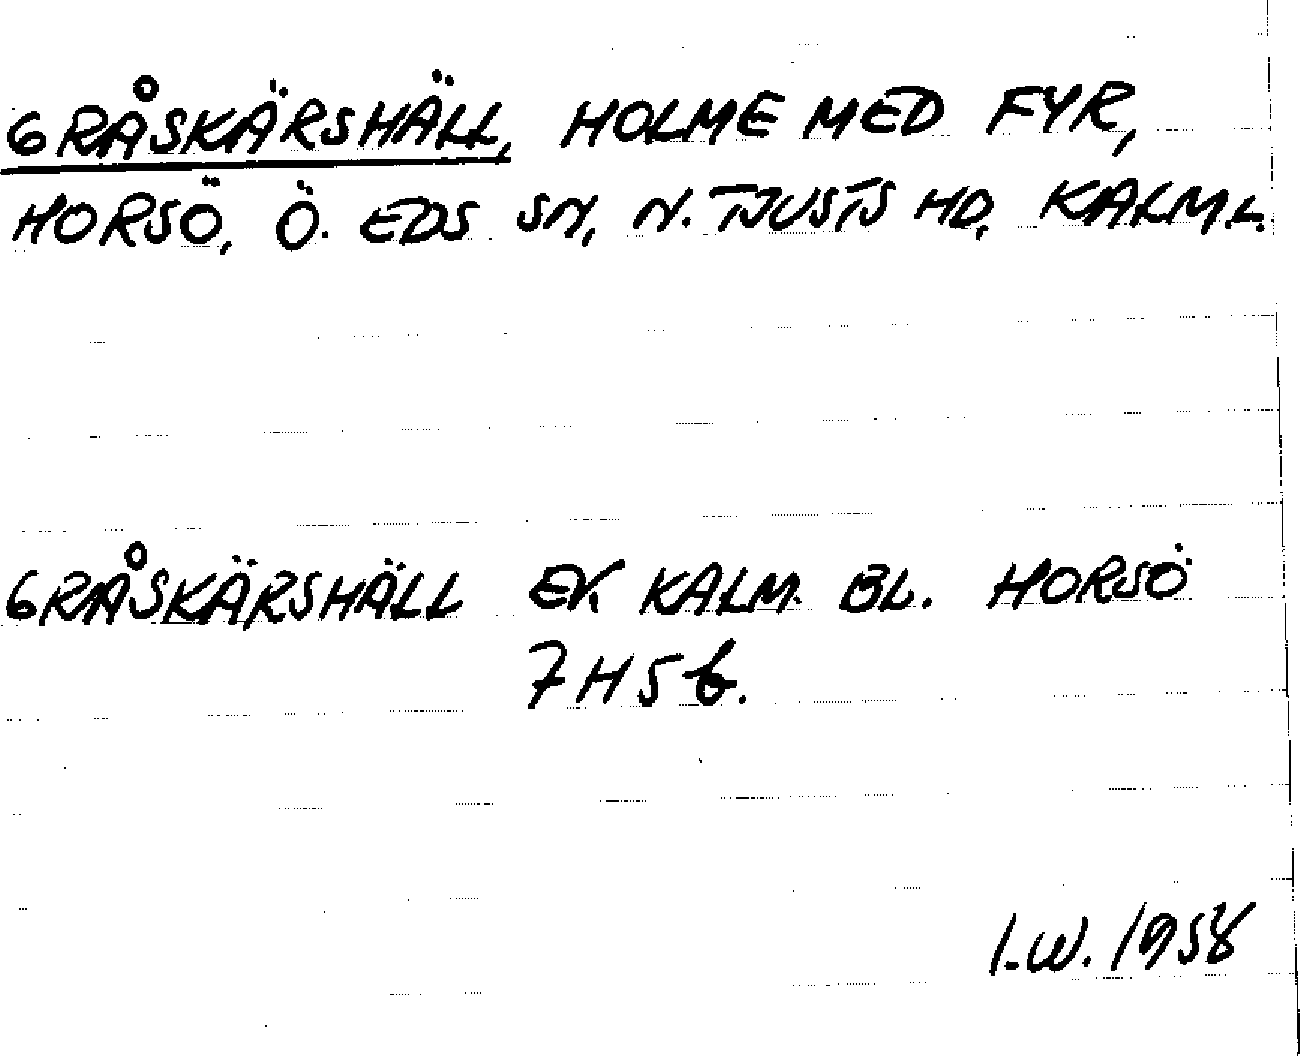 GRÅSKÄRSHÄLL, HOLME MED FYR,
HORSÖ, Ö. EDS SN, N. TJUSTS HD, KALM.L.
GRÅSKÄRSHÄLL EK KALM. BL. HORSÖ
7H5b.
I.W. 1958